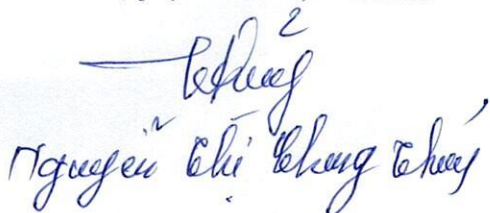 Thủy
Nguyễn Thị Chung Thủy